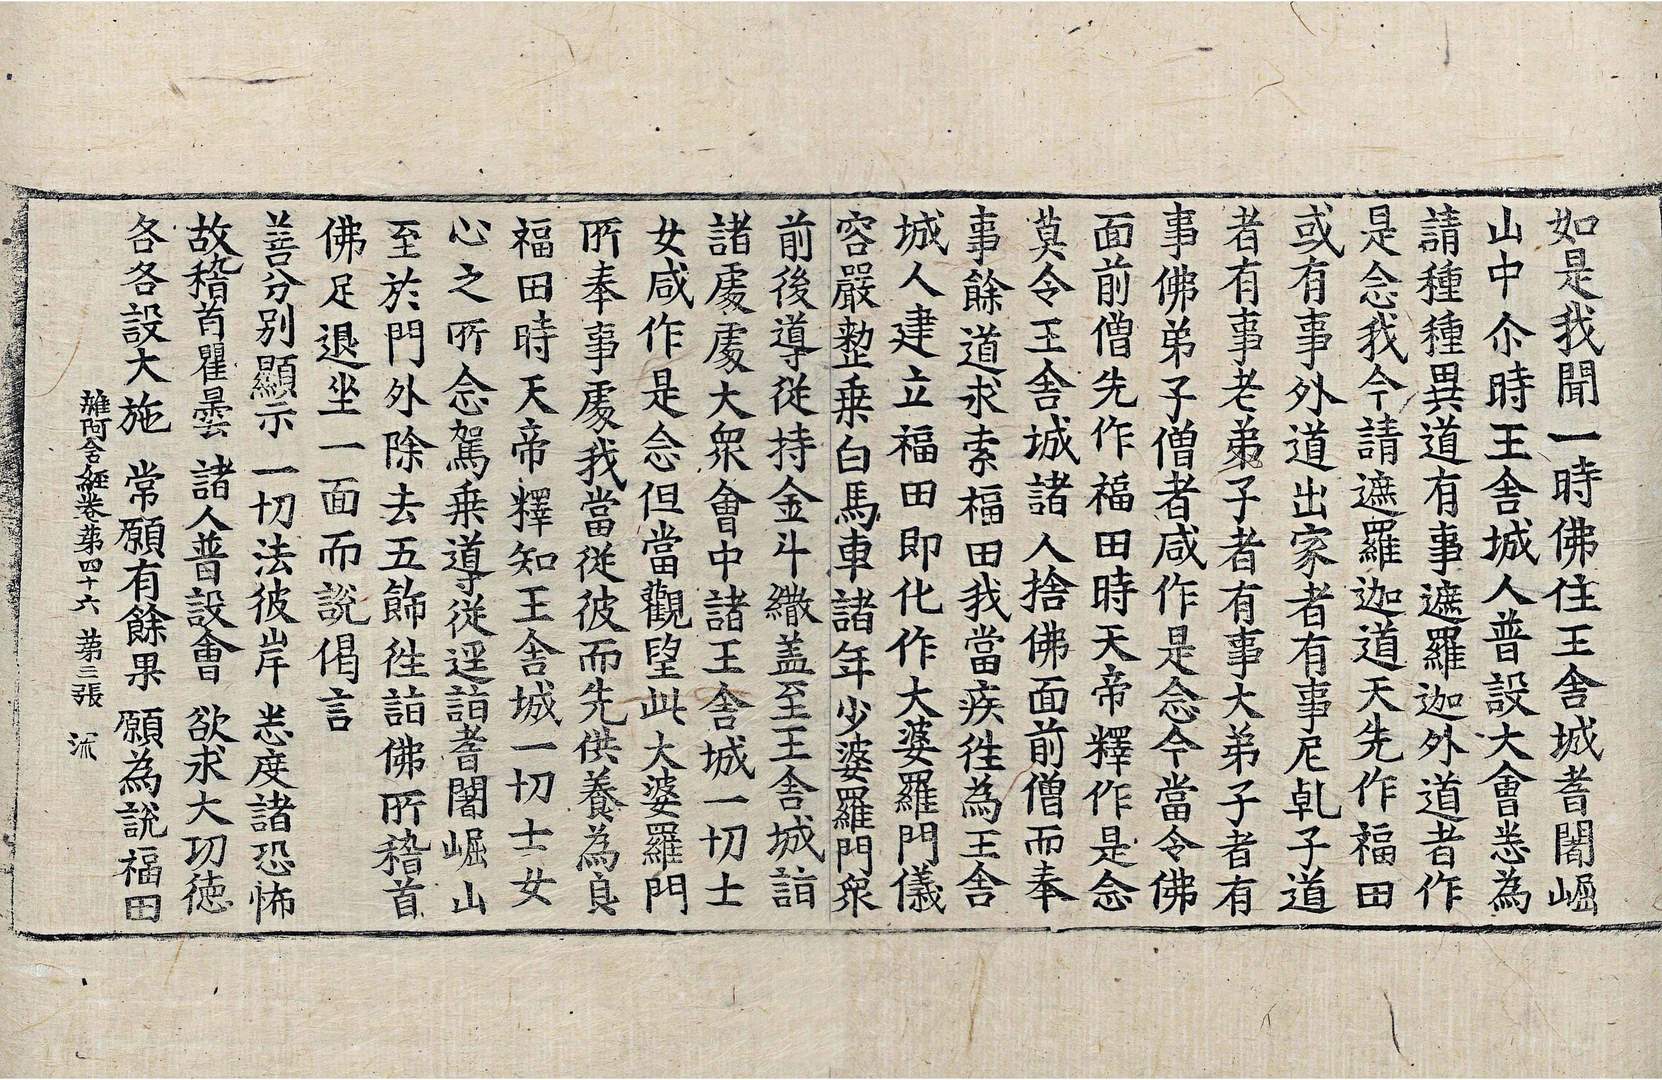 如是我聞一時佛住王舍城耆闍崛
山中尒時王舍城人普設大會悉為
請種種異道有事遮羅迦外道者作
是念我今請遮羅迦道天先作福田
或有事外道出家者有事尼乹子道
者有事老弟子者有事大弟子者有
事佛弟子僧者咸作是念今當令佛
面前僧先作福田時天帝釋作是念
莫令王舍城諸人捨佛面前僧而奉
事餘道求索福田我當疾徃為王舍
城人建立福田即化作大婆羅門儀
容嚴整乗白馬車諸年少婆羅門衆
前後導從持金斗繖盖至王舍城詣
諸處處大衆會中諸王舍城一切士
女咸作是念但當觀望此大婆羅門
所奉事處我當從彼而先供養為良
福田時天帝釋知王舍城一切士女
心之所念駕乗導從逕詣耆闍崛山
至於門外除去五飾徃詣佛所稽首
佛足退坐一面而說偈言
善分別顯示 一切法彼岸 悉度諸恐怖
故稽首瞿曇 諸人普設會 欲求大功徳
各各設大施 常願有餘果 願為說福田
雜阿含經卷第四十六 第三張 流